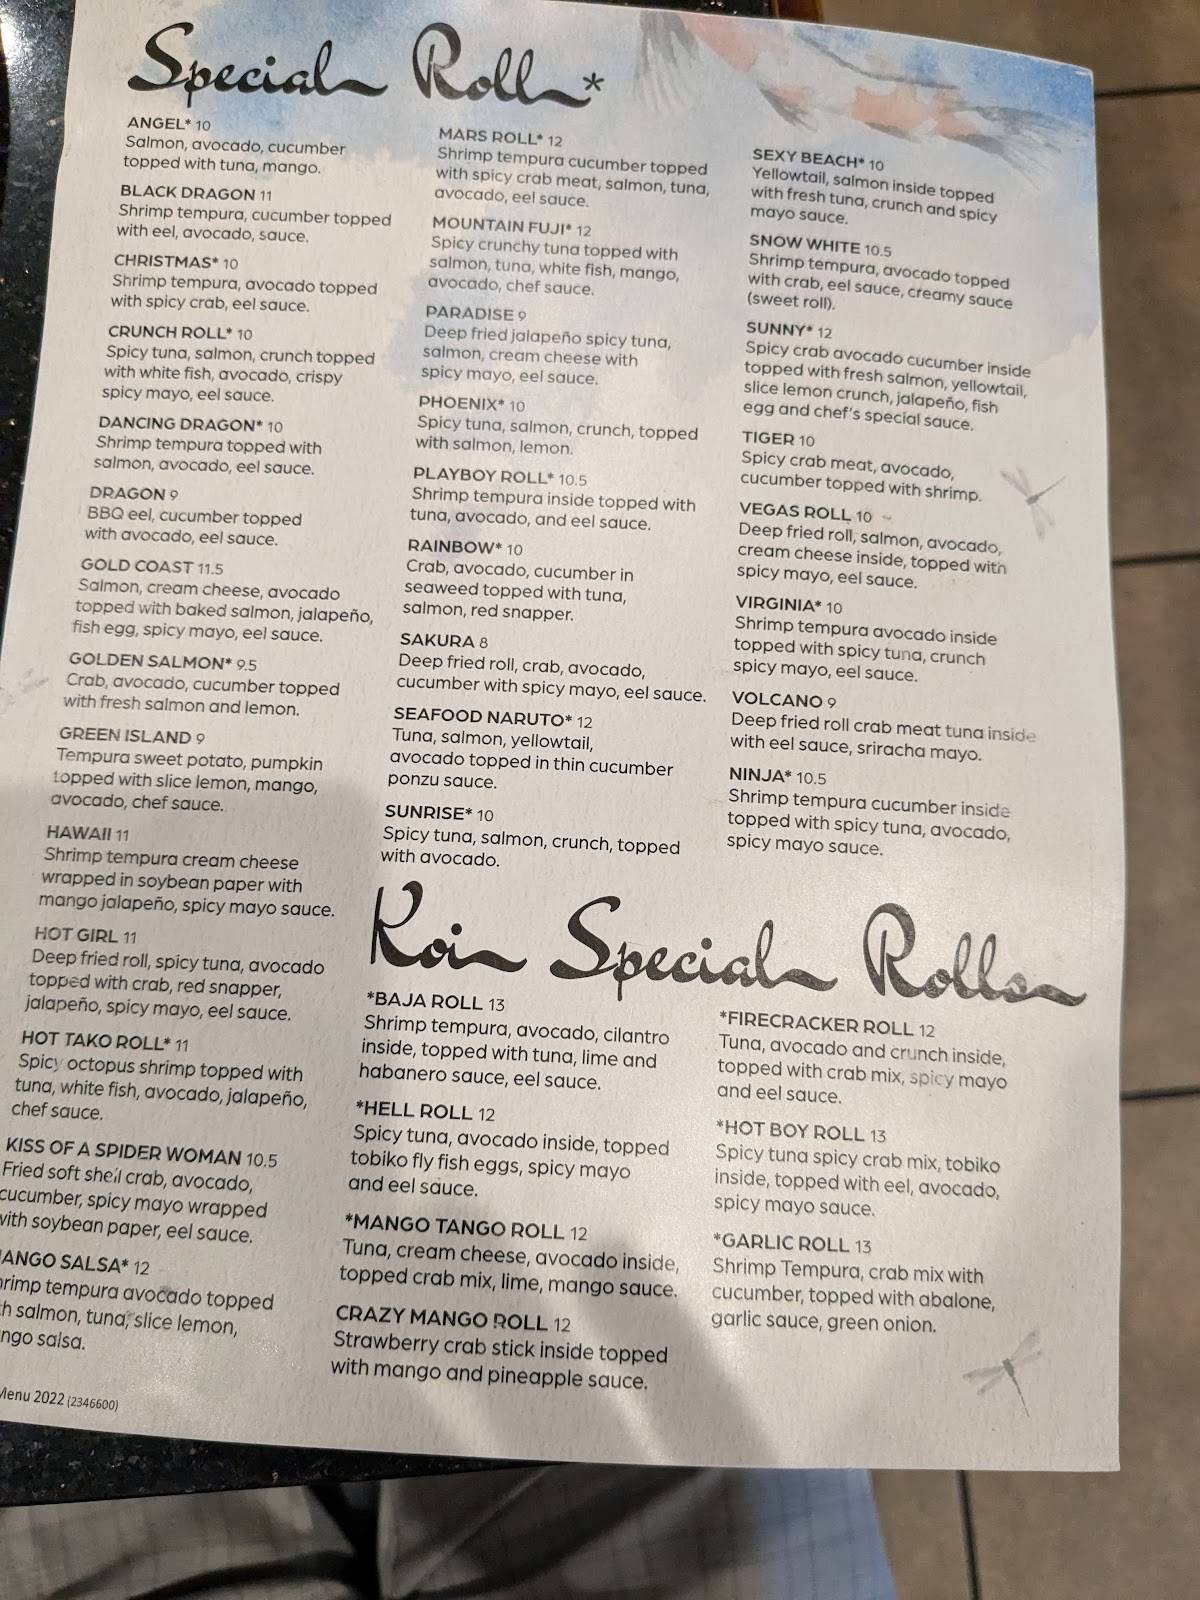 Special Roll*
ANGEL* 10
Salmon, avocado, cucumber
topped with tuna, mango.
BLACK DRAGON 11
Shrimp tempura, cucumber topped
with eel, avocado, sauce.
CHRISTMAS* 10
Shrimp tempura, avocado topped
with spicy crab, eel sauce.
CRUNCH ROLL* 10
Spicy tuna, salmon, crunch topped
with white fish, avocado, crispy
spicy mayo, eel sauce.
DANCING DRAGON* 10
Shrimp tempura topped with
salmon, avocado, eel sauce.
DRAGON 9
BBQ eel, cucumber topped
with avocado, eel sauce.
GOLD COAST 11.5
Salmon, cream cheese, avocado
topped with baked salmon, jalapeño,
fish egg, spicy mayo, eel sauce.
GOLDEN SALMON* 9.5
Crab, avocado, cucumber topped
with fresh salmon and lemon.
GREEN ISLAND 9
Tempura sweet potato, pumpkin
topped with slice lemon, mango,
avocado, chef sauce.
HAWAII 11
Shrimp tempura cream cheese
wrapped in soybean paper with
mango jalapeño, spicy mayo sauce.
HOT GIRL 11
Deep fried roll, spicy tuna, avocado
topped with crab, red snapper,
jalapeño, spicy mayo, eel sauce.
HOT TAKO ROLL* 11
Spicy octopus shrimp topped with
tuna, white fish, avocado, jalapeño,
chef sauce.
KISS OF A SPIDER WOMAN 10.5
Fried soft shell crab, avocado,
cucumber, spicy mayo wrapped
with soybean paper, eel sauce.
ANGO SALSA* 12
hrimp tempura avocado topped
h salmon, tuna, slice lemon,
ngo salsa.
Menu 2022 (2346600)
MARS ROLL* 12
Shrimp tempura cucumber topped
with spicy crab meat, salmon, tuna,
avocado, eel sauce.
MOUNTAIN FUJI* 12
Spicy crunchy tuna topped with
salmon, tuna, white fish, mango,
avocado, chef sauce.
PARADISE 9
Deep fried jalapeño spicy tuna,
salmon, cream cheese with
spicy mayo, eel sauce.
PHOENIX* 10
Spicy tuna, salmon, crunch, topped
with salmon, lemon.
PLAYBOY ROLL* 10.5
Shrimp tempura inside topped with
tuna, avocado, and eel sauce.
RAINBOW* 10
Crab, avocado, cucumber in
seaweed topped with tuna,
salmon, red snapper.
SAKURA 8
Deep fried roll, crab, avocado,
cucumber with spicy mayo, eel sauce.
SEAFOOD NARUTO* 12
Tuna, salmon, yellowtail,
avocado topped in thin cucumber
ponzu sauce.
SUNRISE* 10
Spicy tuna, salmon, crunch, topped
with avocado.
SEXY BEACH* 10
Yellowtail, salmon inside topped
with fresh tuna, crunch and spicy
mayo sauce.
SNOW WHITE 10.5
Shrimp tempura, avocado topped
with crab, eel sauce, creamy sauce
(sweet roll).
SUNNY* 12
Spicy crab avocado cucumber inside
topped with fresh salmon, yellowtail,
slice lemon crunch, jalapeño, fish
egg and chef's special sauce.
TIGER 10
Spicy crab meat, avocado,
cucumber topped with shrimp.
VEGAS ROLL 10
Deep fried roll, salmon, avocado,
cream cheese inside, topped with
spicy mayo, eel sauce.
VIRGINIA* 10
Shrimp tempura avocado inside
topped with spicy tuna, crunch
spicy mayo, eel sauce.
VOLCANO 9
Deep fried roll crab meat tuna inside
with eel sauce, sriracha mayo.
NINJA* 10.5
Shrimp tempura cucumber inside
topped with spicy tuna, avocado,
spicy mayo sauce.
Koi Special Rolls
*BAJA ROLL 13
Shrimp tempura, avocado, cilantro
inside, topped with tuna, lime and
habanero sauce, eel sauce.
*HELL ROLL 12
Spicy tuna, avocado inside, topped
tobiko fly fish eggs, spicy mayo
and eel sauce.
*MANGO TANGO ROLL 12
Tuna, cream cheese, avocado inside,
topped crab mix, lime, mango sauce.
CRAZY MANGO ROLL 12
Strawberry crab stick inside topped
with mango and pineapple sauce.
*FIRECRACKER ROLL 12
Tuna, avocado and crunch inside,
topped with crab mix, spicy mayo
and eel sauce.
*HOT BOY ROLL 13
Spicy tuna spicy crab mix, tobiko
inside, topped with eel, avocado,
spicy mayo sauce.
*GARLIC ROLL 13
Shrimp Tempura, crab mix with
cucumber, topped with abalone,
garlic sauce, green onion.